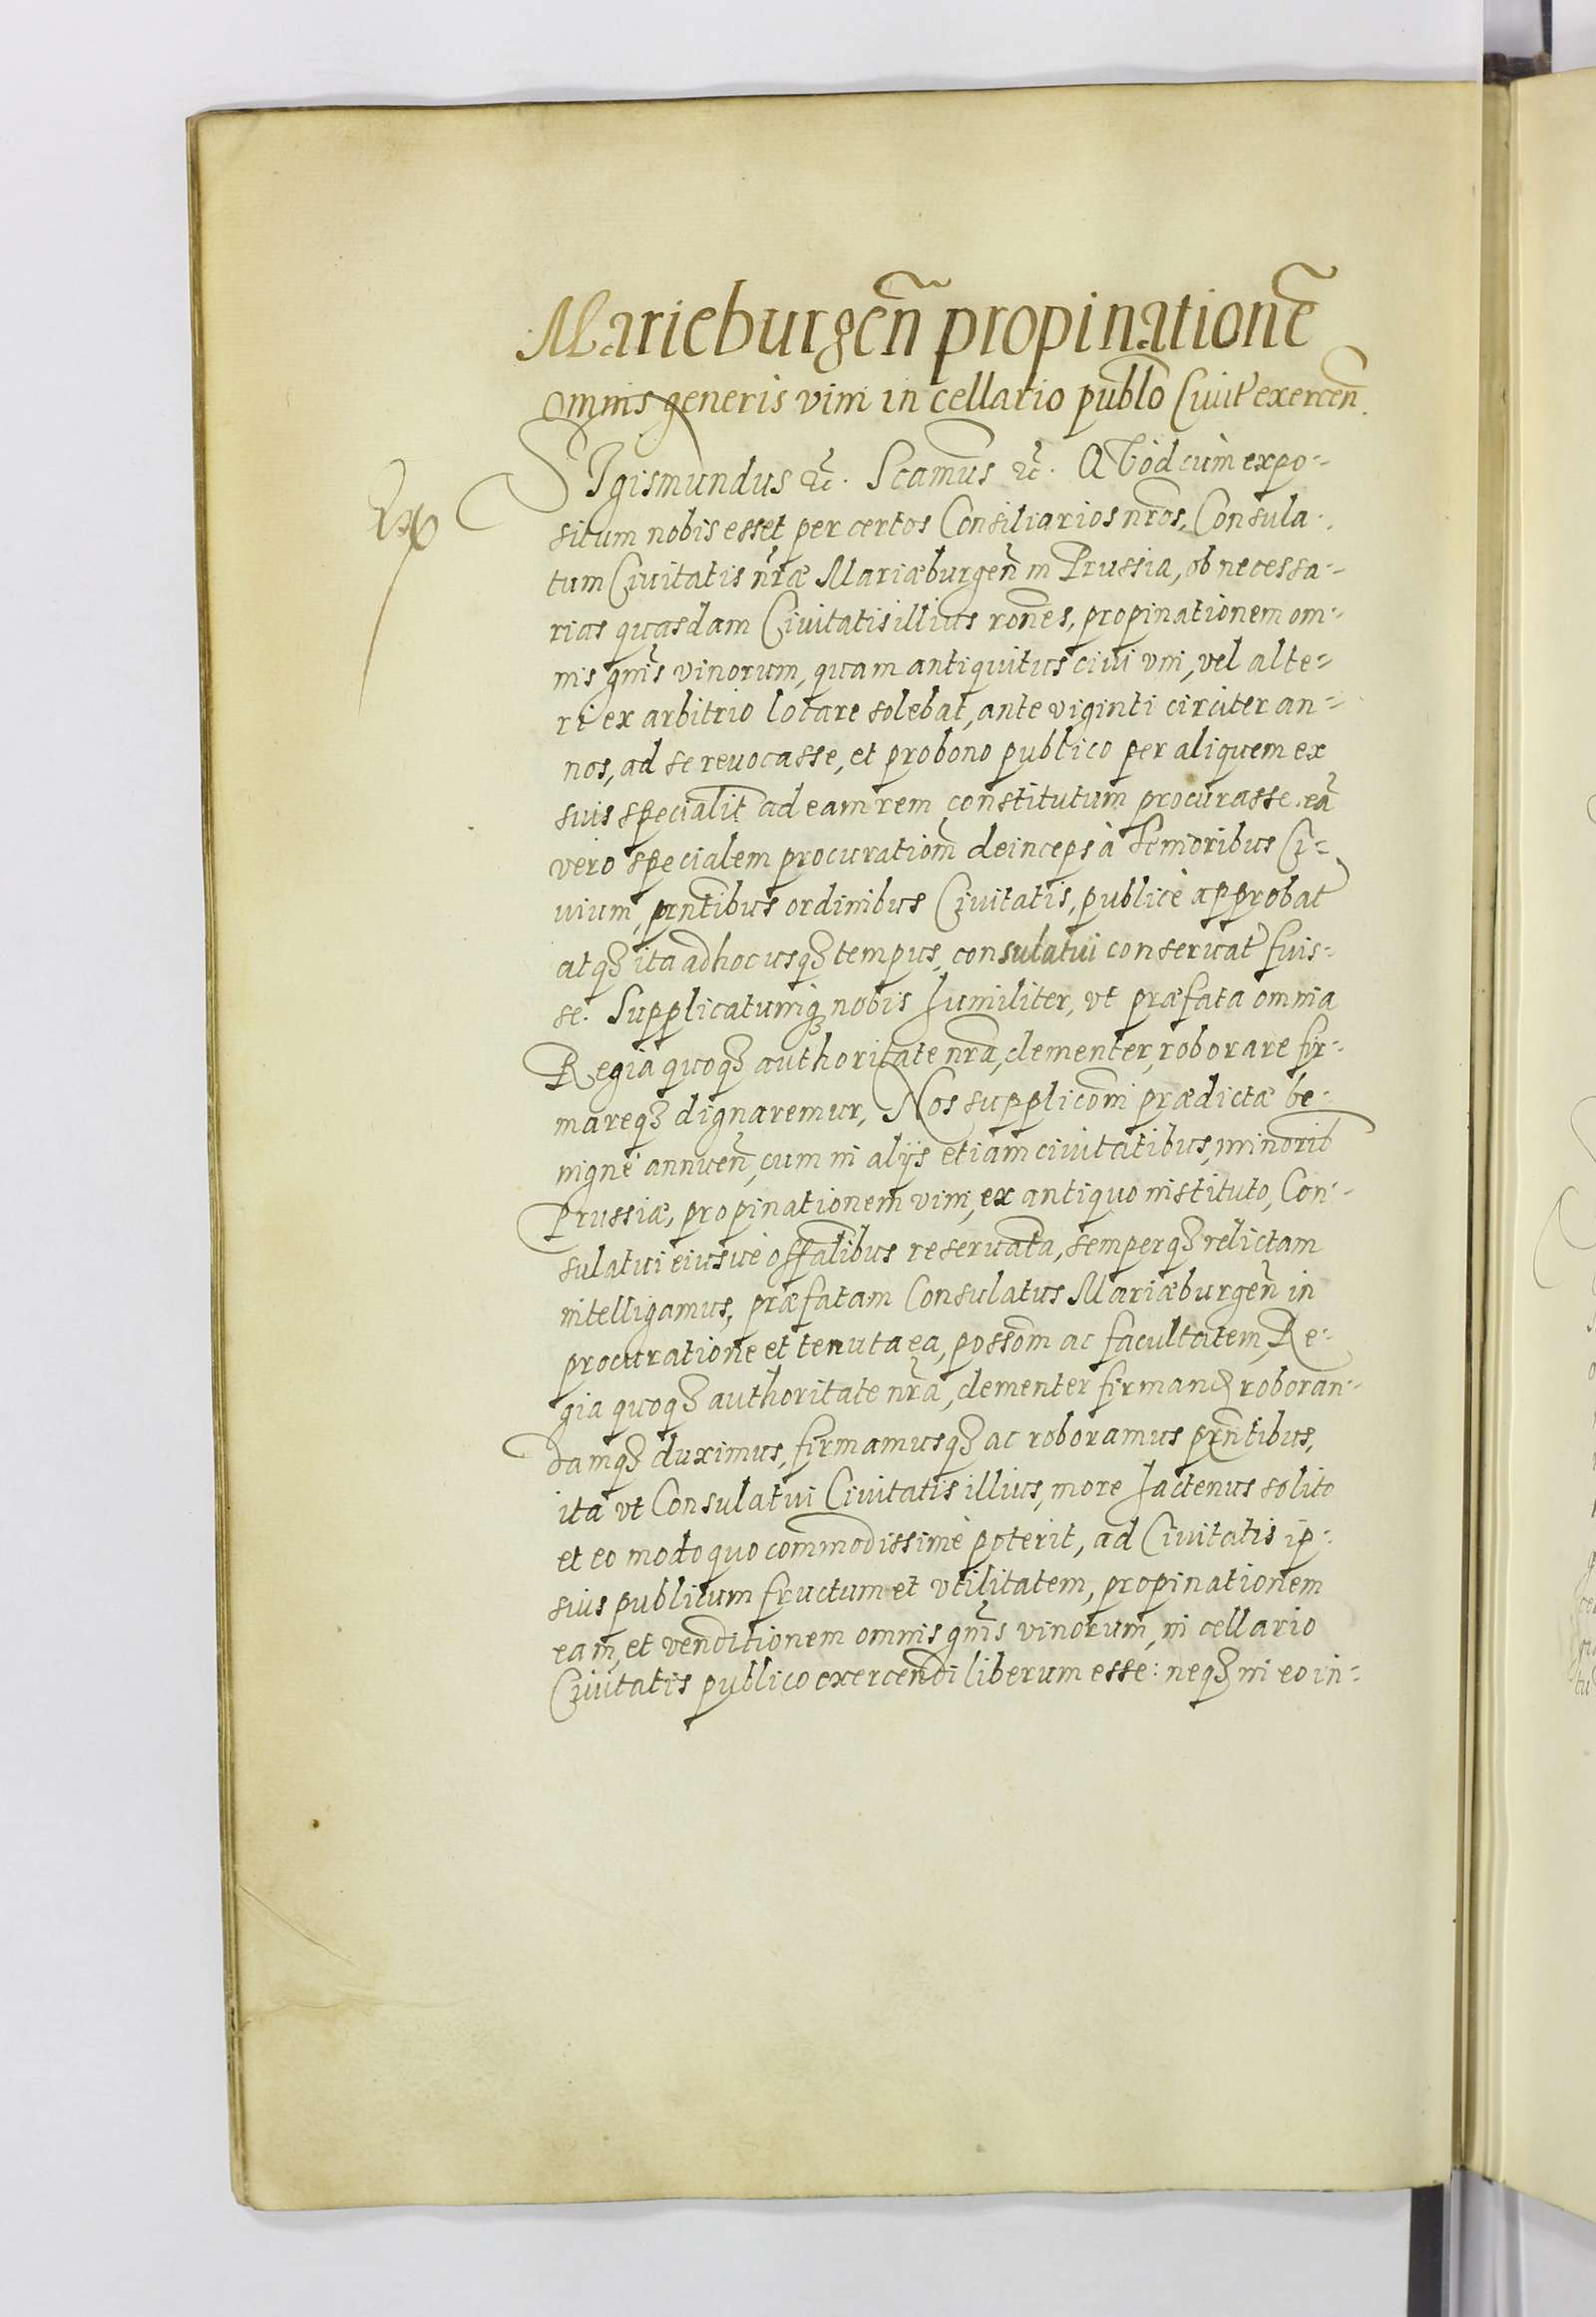 Marieburgen̄ propinatione͂
omnis generis vini in cellario publ̄o Ciuit exercen̄.
SIgismundus ꝛc̃. Scamus ꝛc̃. QVòd cùm expo-
situm nobis esset per certos Consiliarios nr̄os, Consula-
tum Ciuitatis nr̄æ Mariæburgen̄ in Prussia, ob necessa-
rias quasdam Ciuitatis illius ron̄es, propinationem om-
nis gn̄is vinorum, quam antiquitus ciui vni, vel alte-
ri ex arbitrio locare solebat, ante viginti circiter an-
nos, ad se reuocasse, et pro bono publico per aliquem ex
suis specialit̄ ad eam rem constitutum procurasse. eã
vero specialem procuration̄m deinceps à Senioribus Ci-
uium, prn̄tibus ordinibus Ciuitatis, publicè approbat
atqꝫ ita adhoc usqꝫ tempus, consulatui conseruat fuis-
se. Supplicatumqꝫ nobis humiliter, vt præfata omnia
Regia quoqꝫ authoritate nr̄a, clementer, roborare fir-
mareqꝫ dignaremur, Nos supplicōni prædictæ be-
nignè annuen̄, cum in alijs etiam ciuitatibus, minorib
Prussiæ, propinationem vini, ex antiquo instituto, Con-
sulatui eiusuè offālibus reseruāta, semperqꝫ relictam
intelligamus, præfatam Consulatus Mariæburgen̄ in
procuratione et tenuta ea, possōm ac facultatem, Re-
gia quoqꝫ authoritate nr̄a, clementer firmand roboran-
damqꝫ duximus, firmamusqꝫ ac roboramus prn̄tibus,
ita vt Consulatui Ciuitatis illius, more hactenus solito
et eo modo quo commodissimè poterit, ad Ciuitatis ip-
sius publicum fructum et vtilitatem, propinationem
eam, et venditionem omnis gn̄is vinorum, in cellario
Ciuitatis publico exercendi liberum esse: neqꝫ in eo in-